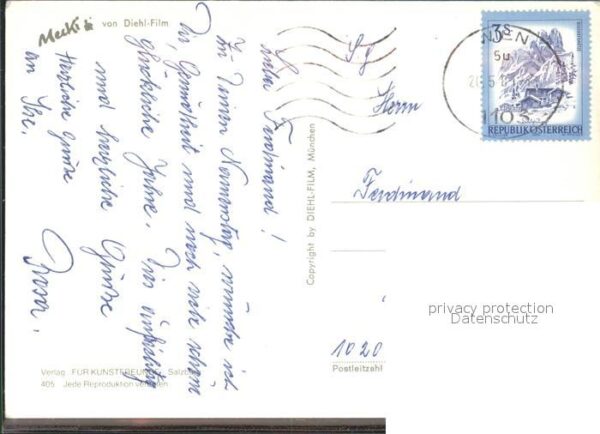 Mecki von Diehl-Film
Lieber Ferdinand!
Zu Deinem Namenstag, wünsche ich
Dir, Gesundheit und noch viele schöne
glückliche Jahre.
und herzliche Grüße
Herzliche Grüße
an Ihre.
Copyright by DIEHL-FILM, München
Verlag FÜR KUNSTFREUNDE Salzburg
405 Jede Reproduktion verboten
3S
REPUBLIK ÖSTERREICH
WIEN
1103
Herrn
Ferdinand
privacy protection
Datenschutz
1020
Postleitzahl